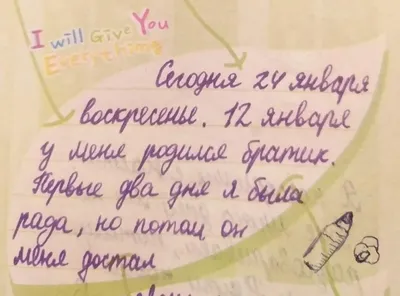 I will Give You
Everything
Сегодня 24 января
воскресенье. 12 января
у меня родился братик.
Первые два дня я была
рада, но потом он
меня достал